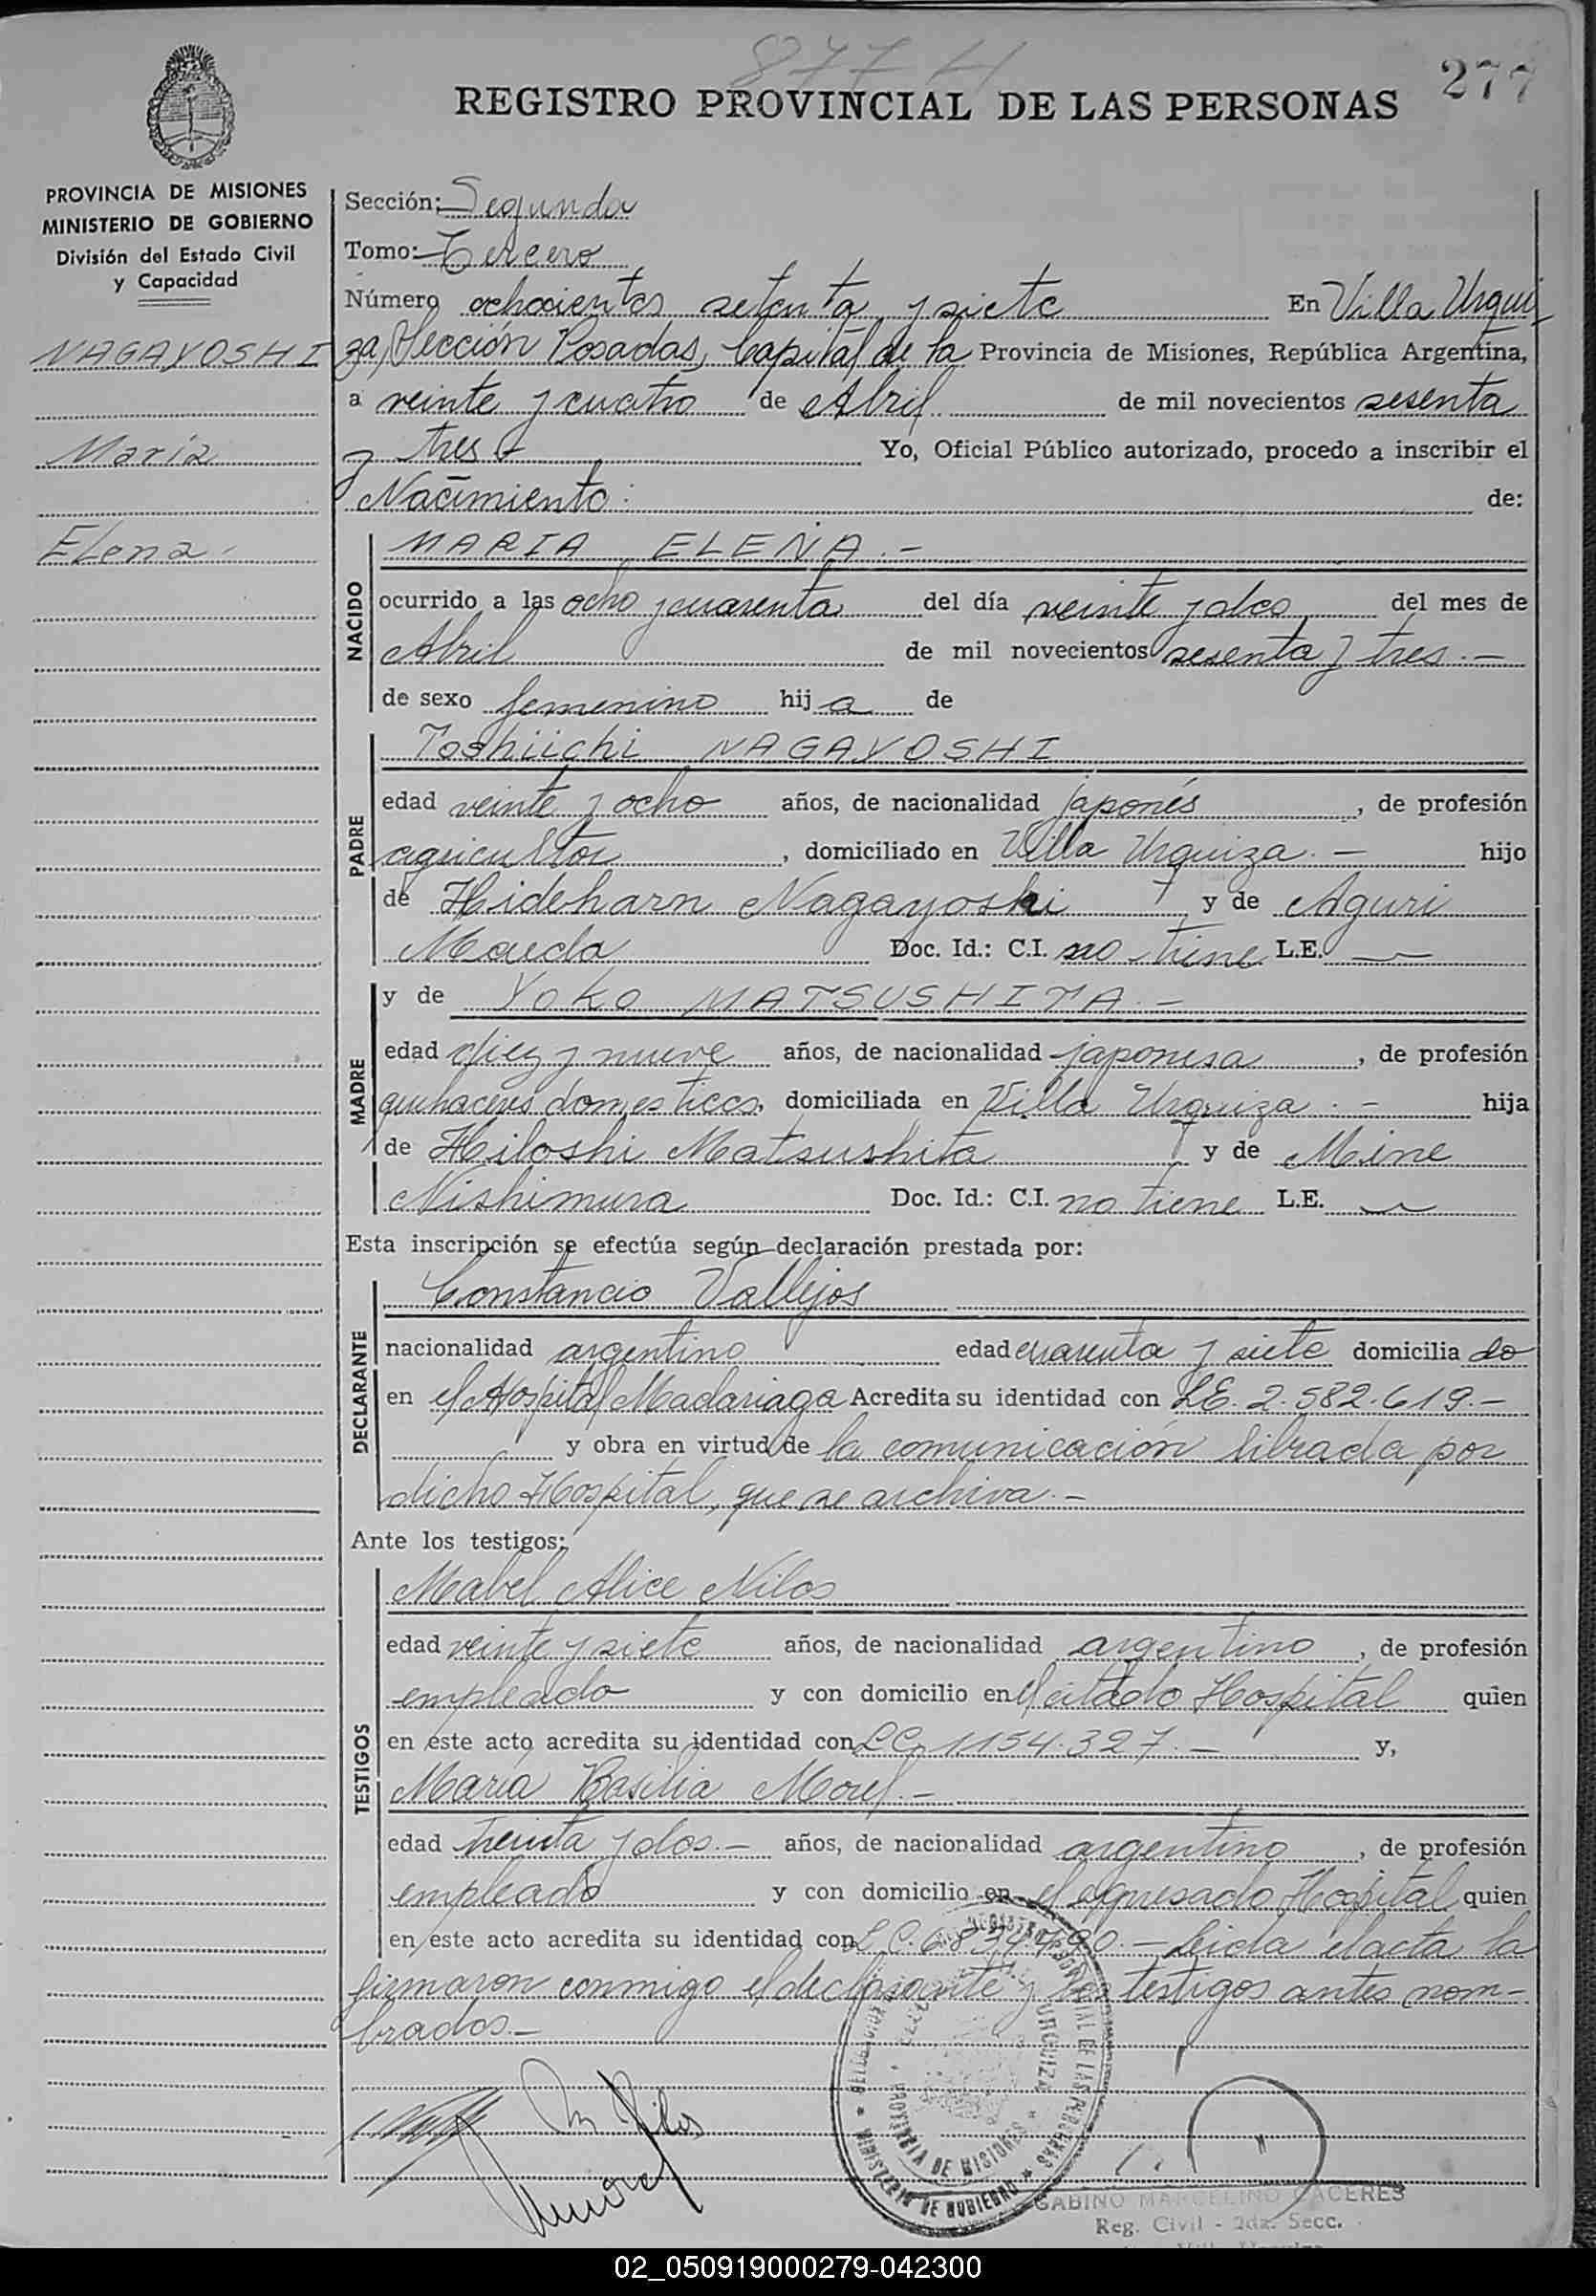 877 H
277
REGISTRO PROVINCIAL DE LAS PERSONAS
PROVINCIA DE MISIONES
MINISTERIO DE GOBIERNO
División del Estado Civil
y Capacidad
NAGAYOSHI
María
Elena
Sección: Segunda
Tomo: Tercero
Número ochocientos setenta y siete En Villa Urqui
za, Sección Posadas, Capital de la Provincia de Misiones, República Argentina,
a veinte y cuatro de Abril de mil novecientos sesenta
y tres Yo, Oficial Público autorizado, procedo a inscribir el
Nacimiento: de:
NACIDO
MARIA ELENA.-
ocurrido a las ocho y cuarenta del día veinte y dos del mes de
Abril de mil novecientos sesenta y tres.-
de sexo femenino hij a de
PADRE
Toshiichi NAGAYOSHI
edad veinte y ocho años, de nacionalidad japonés, de profesión
agricultor, domiciliado en Villa Urquiza.- hijo
de Hideharn Nagayoshi y de Aguri
Maeda Doc. Id.: C.I. no tiene L.E. —
MADRE
y de YOKO MATSUSHITA.-
edad diez y nueve años, de nacionalidad japonesa, de profesión
quehaceres domesticos, domiciliada en Villa Urquiza.- hija
de Hiloshi Matsushita y de Mine
Nishimura Doc. Id.: C.I. no tiene L.E. —
Esta inscripción se efectúa según declaración prestada por:
DECLARANTE
Constancio Vallejos
nacionalidad argentino edad cuarenta y siete domicilia do
en el Hospital Madariaga Acredita su identidad con LE. 2.582.619.-
y obra en virtud de la comunicación librada por
dicho Hospital, que se archiva.-
Ante los testigos:
TESTIGOS
Mabel Alice Nilos
edad veinte y siete años, de nacionalidad argentino, de profesión
empleado y con domicilio en el citado Hospital quien
en este acto acredita su identidad con LC. 1.154.327.- y,
María Basilia Morel.-
edad treinta y dos.- años, de nacionalidad argentino, de profesión
empleado y con domicilio en el expresado Hospital quien
en este acto acredita su identidad con L.C. Leida el acta la
firmaron conmigo el declarante y los testigos antes nom-
brados.-
MINISTERIO DE GOBIERNO
PROVINCIA DE MISIONES
URQUIZA
GABINO MARCELINO CACERES
Reg. Civil - 2da. Secc.
02_050919000279-042300